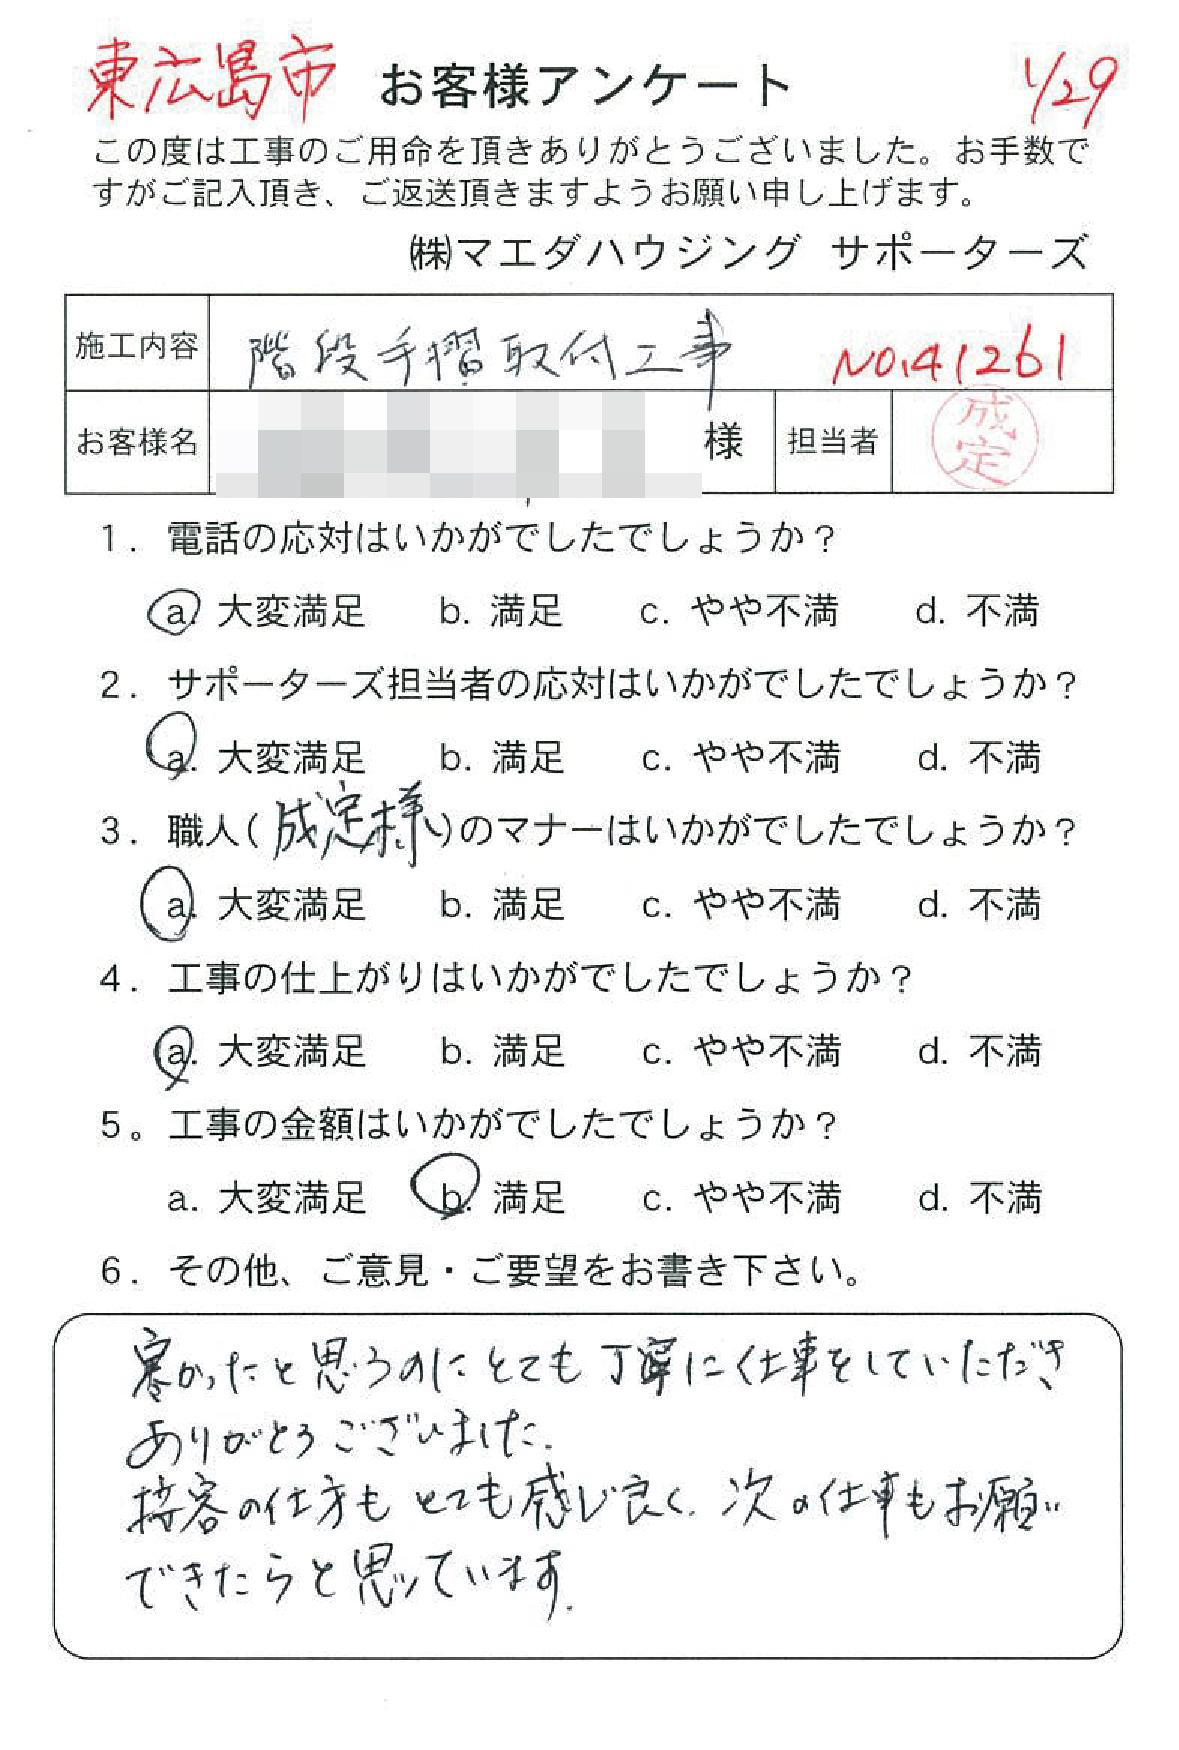 東広島市 お客様アンケート 1/29
この度は工事のご用命を頂きありがとうございました。お手数で
すがご記入頂き、ご返送頂きますようお願い申し上げます。
㈱マエダハウジング サポーターズ
施工内容 階段手摺取付工事 NO.41261
お客様名 様 担当者 成定
1. 電話の応対はいかがでしたでしょうか？
a. 大変満足 b. 満足 c. やや不満 d. 不満
2. サポーターズ担当者の応対はいかがでしたでしょうか？
a. 大変満足 b. 満足 c. やや不満 d. 不満
3. 職人(成定様)のマナーはいかがでしたでしょうか？
a. 大変満足 b. 満足 c. やや不満 d. 不満
4. 工事の仕上がりはいかがでしたでしょうか？
a. 大変満足 b. 満足 c. やや不満 d. 不満
5。工事の金額はいかがでしたでしょうか？
a. 大変満足 b. 満足 c. やや不満 d. 不満
6. その他、ご意見・ご要望をお書き下さい。
寒かったと思うのにとても丁寧に仕事をしていただき
ありがとうございました.
接客の仕方もとても感じ良く、次の仕事もお願い
できたらと思っています.